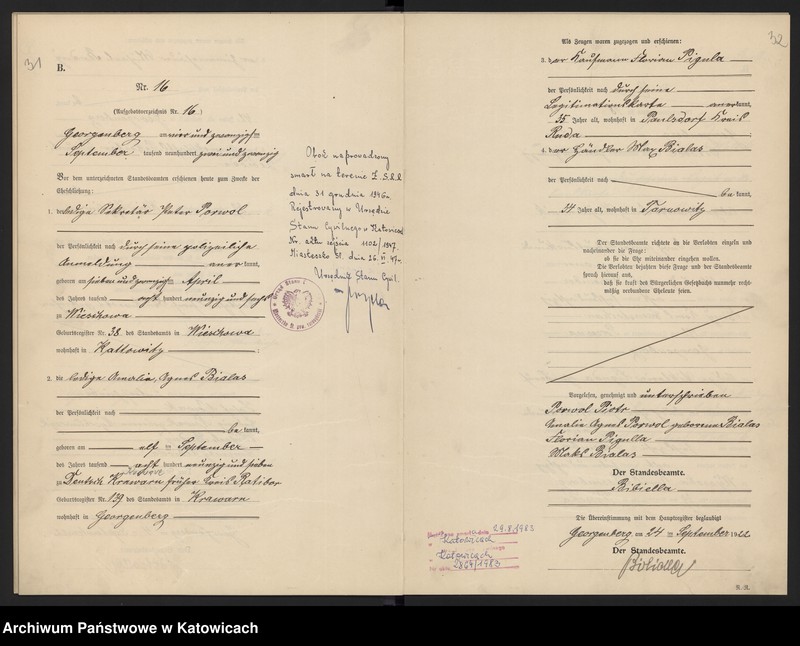 31
B.
Nr. 16
(Aufgebotsverzeichnis Nr. 16)
Georgenberg am vier und zwanzigsten
September tausend neunhundert zwei und zwanzig
Vor dem unterzeichneten Standesbeamten erschienen heute zum Zwecke der
Eheschließung:
1. der ledige Sekretär Peter Porwol
der Persönlichkeit nach durch seine polizeiliche
Anmeldung anerkannt,
geboren am sieben und zwanzigsten April
des Jahres tausend acht hundert neunzig und sechs
zu Wieschowa
Geburtsregister Nr. 38 des Standesamts in Wieschowa
wohnhaft in Kattowitz ;
2. die ledige Amalie, Agnes Bialas
der Persönlichkeit nach
bekannt,
geboren am elf ten September
des Jahres tausend acht hundert neunzig und sieben
zu Deutsch Krawarn früher Kreis Ratibor
Geburtsregister Nr. 139 des Standesamts in Krawarn
wohnhaft in Georgenberg
Obód naprowadzony
zmarł na terenie Z.S.R.R.
dnia 31 grudnia 1946r.
Rejestrowany w Urzędzie
Stanu Cywilnego w Katowicach
Nr. aktu zejścia 1102/1947.
Miasteczko Śl. dnia 26. VI. 47r.
Urzędnik Stanu Cywil.
32
Als Zeugen waren zugezogen und erschienen:
3. der Kaufmann Florian Pigula
der Persönlichkeit nach durch seine
Legitimationskarte anerkannt,
35 Jahre alt, wohnhaft in Paulsdorf Kreis
Ruda
4. der Händler Max Bialas
der Persönlichkeit nach
bekannt,
34 Jahre alt, wohnhaft in Tarnowitz
Der Standesbeamte richtete an die Verlobten einzeln und
nacheinander die Frage:
ob sie die Ehe miteinander eingehen wollen.
Die Verlobten bejahten diese Frage und der Standesbeamte
sprach hierauf aus,
daß sie kraft des Bürgerlichen Gesetzbuchs nunmehr recht-
mäßig verbundene Eheleute seien.
Vorgelesen, genehmigt und unterschrieben
Porwol Piotr
Amalie Agnes Porwol geborene Bialas
Florian Pigulla
Maks Bialas
Der Standesbeamte.
Bibiella
Die Übereinstimmung mit dem Hauptregister beglaubigt
Georgenberg am 24 ten September 1922
Der Standesbeamte.
Bibiella
29.8.1983
Katowicach
Katowicach
2864/1983
Archiwum Państwowe w Katowicach